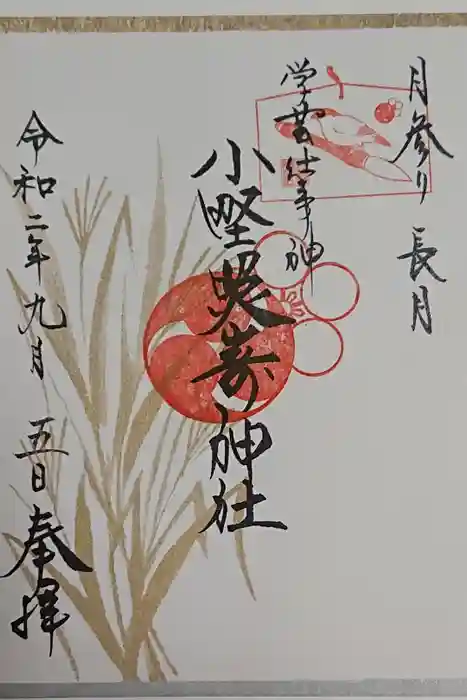 月参り 長月
学芸仕事神
小野照崎神社
令和二年九月五日奉拝